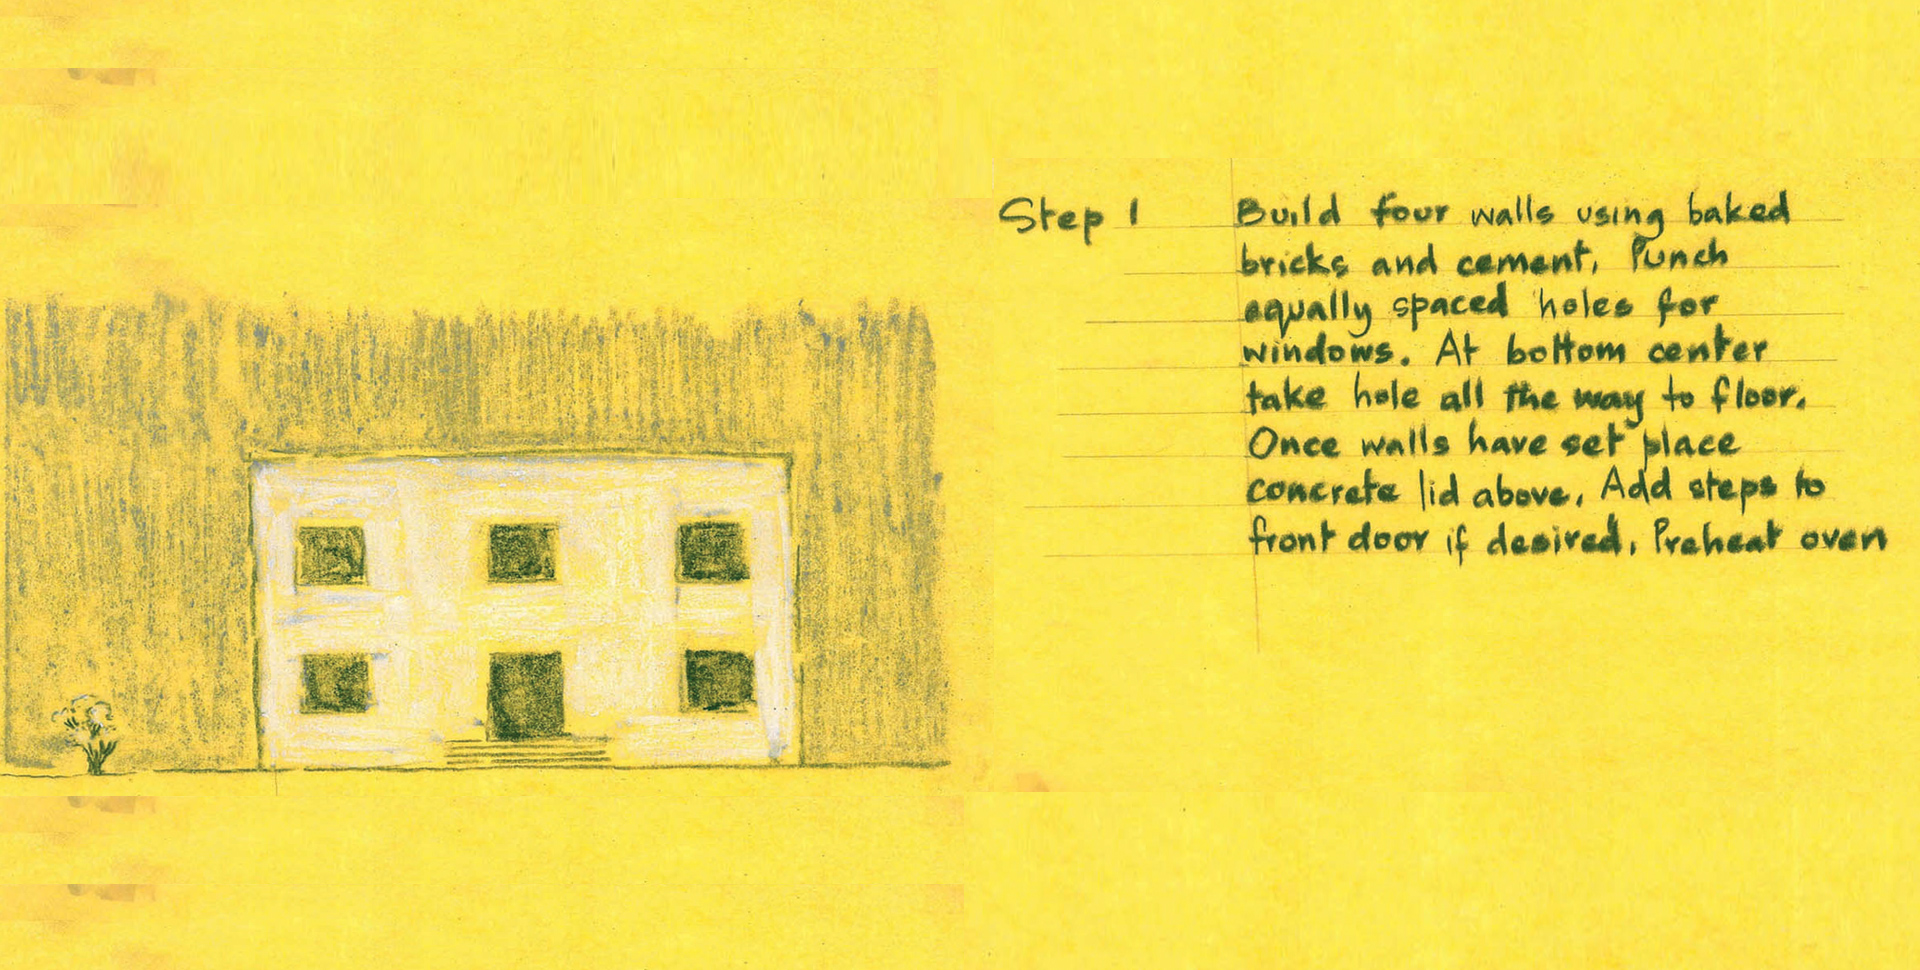 Step 1 Build four walls using baked
bricks and cement. Punch
equally spaced holes for
windows. At bottom center
take hole all the way to floor.
Once walls have set place
concrete lid above. Add steps to
front door if desired. Preheat oven